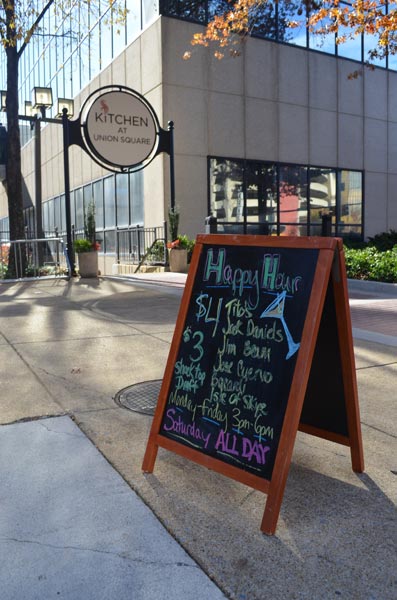 KITCHEN
AT
UNION SQUARE
Happy Hour
$4 Tito's
Jack Daniels
$3 Jim Beam
Shock Top Jose Cuervo
Draft Bacardi
Isle of Skye
Monday-Friday 3pm-6pm
Saturday ALL DAY